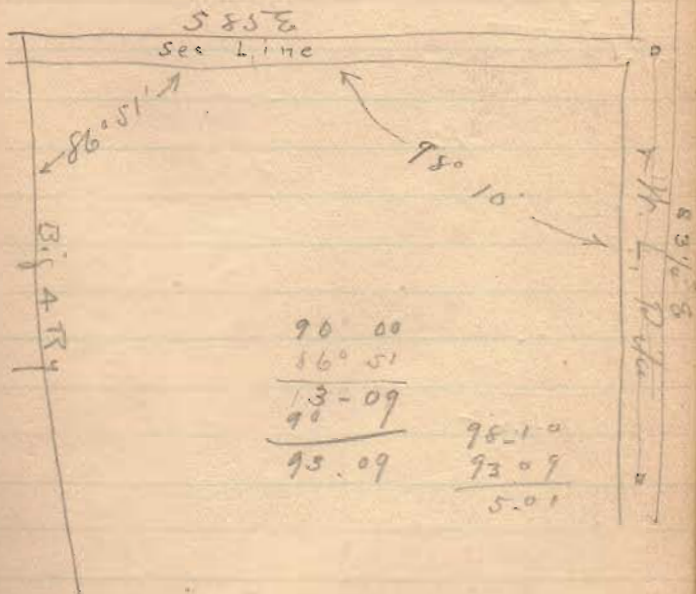 S 85 E
Sec Line
86° 51'
98° 10'
Big 4 Ry
90 00
86° 51
13-09
90
93.09
98-10
93 09
5-01